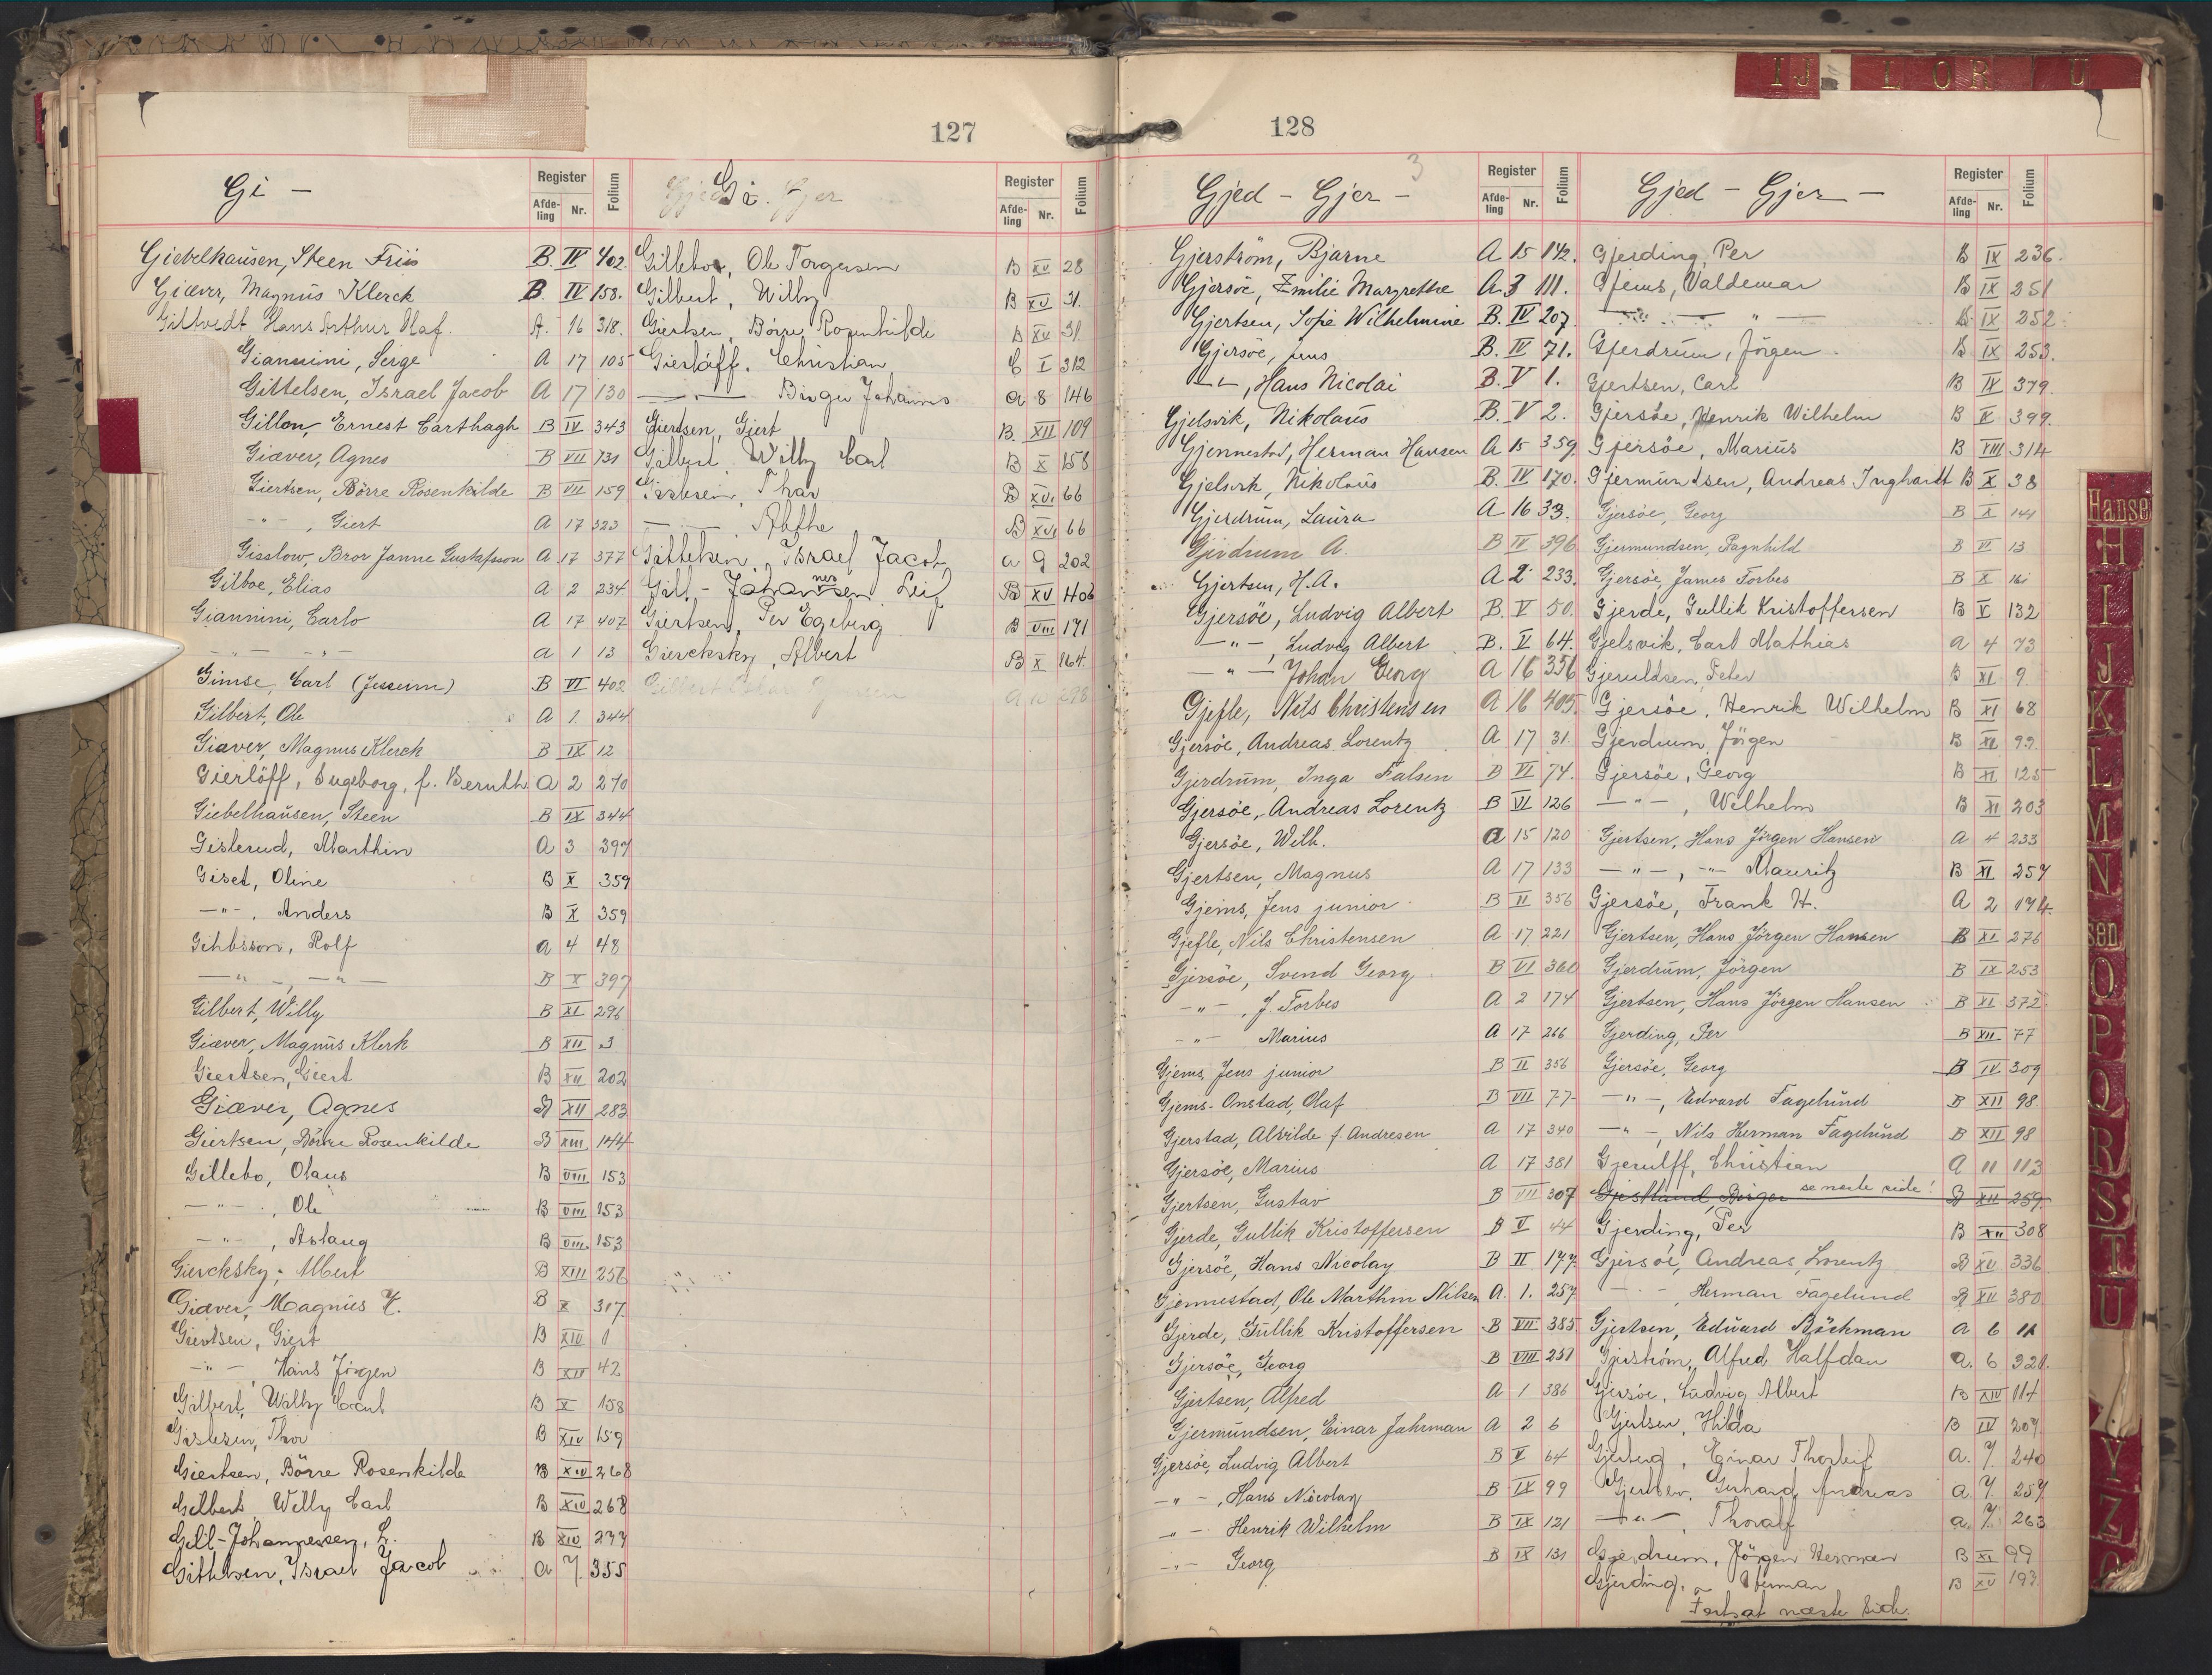 127
Gi -
Register
Afde-ling Nr. Folium
Giebelhausen, Steen Friis B. IV 402.
Giæver, Magnus Klerck B. IV 158.
Giltvedt Hans Arthur Olaf. A. 16 318.
Giannini, Serge A 17 105
Gittelsen, Israel Jacob A 17 130
Gillon, Ernest Carthagh B IV 343
Giæver, Agnes B VII 131
Giertsen, Börre Rosenkilde B VII 159
-"- , Giert A 17 323
Gisslow, Bror Janne Gustafsson A 17 377
Gilboe, Elias A 2 234
Giannini, Carlo A 17 407
-"- -"- A 1 13
Gimse, Carl (Jesseim) B VI 402
Gilbert, Ole A 1. 344
Giæver, Magnus Klerck B IX 12
Gierlöff, Ingeborg, f. Beruth A 2 270
Giebelhausen, Steen B IX 344
Gislerud, Marthin A 3 397
Giset, Oline B X 359
-"- , Anders B X 359
Rolf A 4 48
-"-, -"- B X 397
Gilbert, Willy B XI 296
Giæver, Magnus Klerk B XII 3
Giertsen, Giert B XII 202
Giæver, Agnes B XII 283
Giertsen, Börre Rosenkilde B XIII 144
Gillebo, Olaus B VIII 153
-"- , Ole B VIII 153
-"- , Aslaug B VIII 153
Giercksky, Albert B XIII 256
Giæver, Magnus K. B X 317.
Giertsen, Giert B XIV 1
-"- , Hans Jörgen B XIV 42
Gilbert, Willy Carl B X 158
Gislesen, Thor B XIV 159
Giertsen, Börre Rosenkilde B XIV 268
Gilbert, Willy Carl B XIV 268
Gill-Johannessen, L. B XIV 277
Gittelsen, Israel Jacob A 7. 355
Gi.
Register
Afde-ling Nr. Folium
Gillebo, Ole Torgersen B XV 28
Gilbert, Willy B XV 31.
Giertsen, Börre Rosenkilde B XV 31
Gierlöff, Christian C I 312
-"- Birger Johannes A 8 146
Giertsen, Giert B. XII 109
Gilbert, Willy Carl B X 158
Gislesen, Thor B XVI 66
-"- B XVI 66
Gittelsen, Israel Jacob A 9 202
Gill-Johannesen, Leif B XV 406
Giertsen, Per Egeberg B VIII 171
Giercksky, Albert B X 164.
128
3
Gjed - Gjer -
Register
Afde-ling Nr. Folium
Gjerström, Bjarne A 15 142.
Gjersöe, Emilie Margrethe A 3 111.
Gjertsen, Sofie Wilhelmine B. IV 207.
Gjersöe, Jens B. IV 71.
-"-, Hans Nicolai B. V 1.
Gjelsvik, Nikolaus B. V 2.
Gjennestad, Herman Hansen A 15 359.
Gjelsvik, Nikolaus B. IV 170.
Gjerdrum, Laura A 16 33.
Gjerdrum A. B IV 396
Gjertsen, H.A. A 2 233.
Gjersöe, Ludvig Albert B. V 50.
-"-, Ludvig Albert B. V 64.
-"- Johan Georg A 16 356
Gjefle, Nils Christensen A 16 405.
Gjersöe, Andreas Lorentz A 17 31.
Gjerdrum, Inga Falsen B VI 74.
Gjersöe, Andreas Lorentz B VI 126
Gjersöe, Wilh. A 15 120
Gjertsen, Magnus A 17 133
Gjems, Jens junior B II 356
Gjefle, Nils Christensen A 17 221
Gjersöe, Svend Georg B VI 360
-"- , J. Forbes A 2 174
-"- Marius A 17 266
Gjems, Jens junior B II 356
Gjems-Onstad, Olaf B VII 77
Gjerstad, Alvilde f. Andresen A 17 340
Gjersöe, Marius A 17 381
Gjertsen, Gustav B VII 307
Gjerde, Gullik Kristoffersen B V 44
Gjersöe, Hans Nicolay B II 177.
Gjennestad, Ole Marthin Nilsen A. 1. 257
Gjerde, Gullik Kristoffersen B VII 385
Gjersöe, Georg B VIII 251
Gjertsen, Alfred A 1 386
Gjermundsen, Einar Jahrman A 2 6
Gjersöe, Ludvig Albert B V 64
-"-, Hans Nicolay B IX 99
-"- Henrik Wilhelm B IX 121
-"- Georg B IX 131
Gjed - Gjer -
Register
Afde-ling Nr. Folium
Gjerding, Per B IX 236.
Gjems, Valdemar B IX 251
-"- B IX 252
Gjerdrum, Jörgen B IX 253.
Gjertsen, Carl B IX 379.
Gjersöe, Henrik Wilhelm B V 399.
Gjersöe, Marius B VIII 314
Gjermundsen, Andreas Inghardt B X 38
Gjersöe, Georg B X 141
Gjermundsen, Ragnhild B VI 13
Gjersöe, James Forbes B X 161
Gjerde, Gullik Kristoffersen B V 132
Gjelsvik, Carl Mathias A 4 73
Gjeruldsen, Peter B XI 9
Gjersöe, Henrik Wilhelm B XI 68
Gjerdrum, Jörgen B XI 99.
Gjersöe, Georg B XI 125
-"- , Wilhelm B XI 203
Gjertsen, Hans Jörgen Hansen A 4 233
-"-, -"- Mauritz B XI 257
Gjersöe, Frank H. A 2 174.
Gjertsen, Hans Jörgen Hansen B XI 276
Gjerdrum, Jörgen B IX 253
Gjertsen, Hans Jörgen Hansen B XI 372
Gjerding, Per B XII 77
Gjersöe, Georg B IV 309
-"-, Edvard Fagelund B XII 98.
-"-, Nils Herman Fagelund B XII 98
Gjerulff, Christian A 11 113
Gjestland, Birger se neste side! B XII 259
Gjerding, Per B XII 308
Gjersöe, Andreas Lorentz B XII 336
-"- , Herman Fagelund B XII 380
Gjertsen, Edvard Böckman A 6 11
Gjerström, Alfred Halfdan A. 6 321.
Gjersöe, Ludvig Albert B XIV 114
Gjertsen, Hilda B IV 207.
Gjerberg, Einar Thorleif A. 7. 240
Gjertsen, Gerhard Andreas A. 7. 257
-"-, Thoralf A. 7. 263
Gjerdrum, Jörgen Herman B XI 99
Gjerding, Herman B XV 193.
Fortsat næste Side.
IJ L OR U
Hansen
H
I
J
K
L
M
N
sen
O
P
Q
R
S
T
U
Y
Z